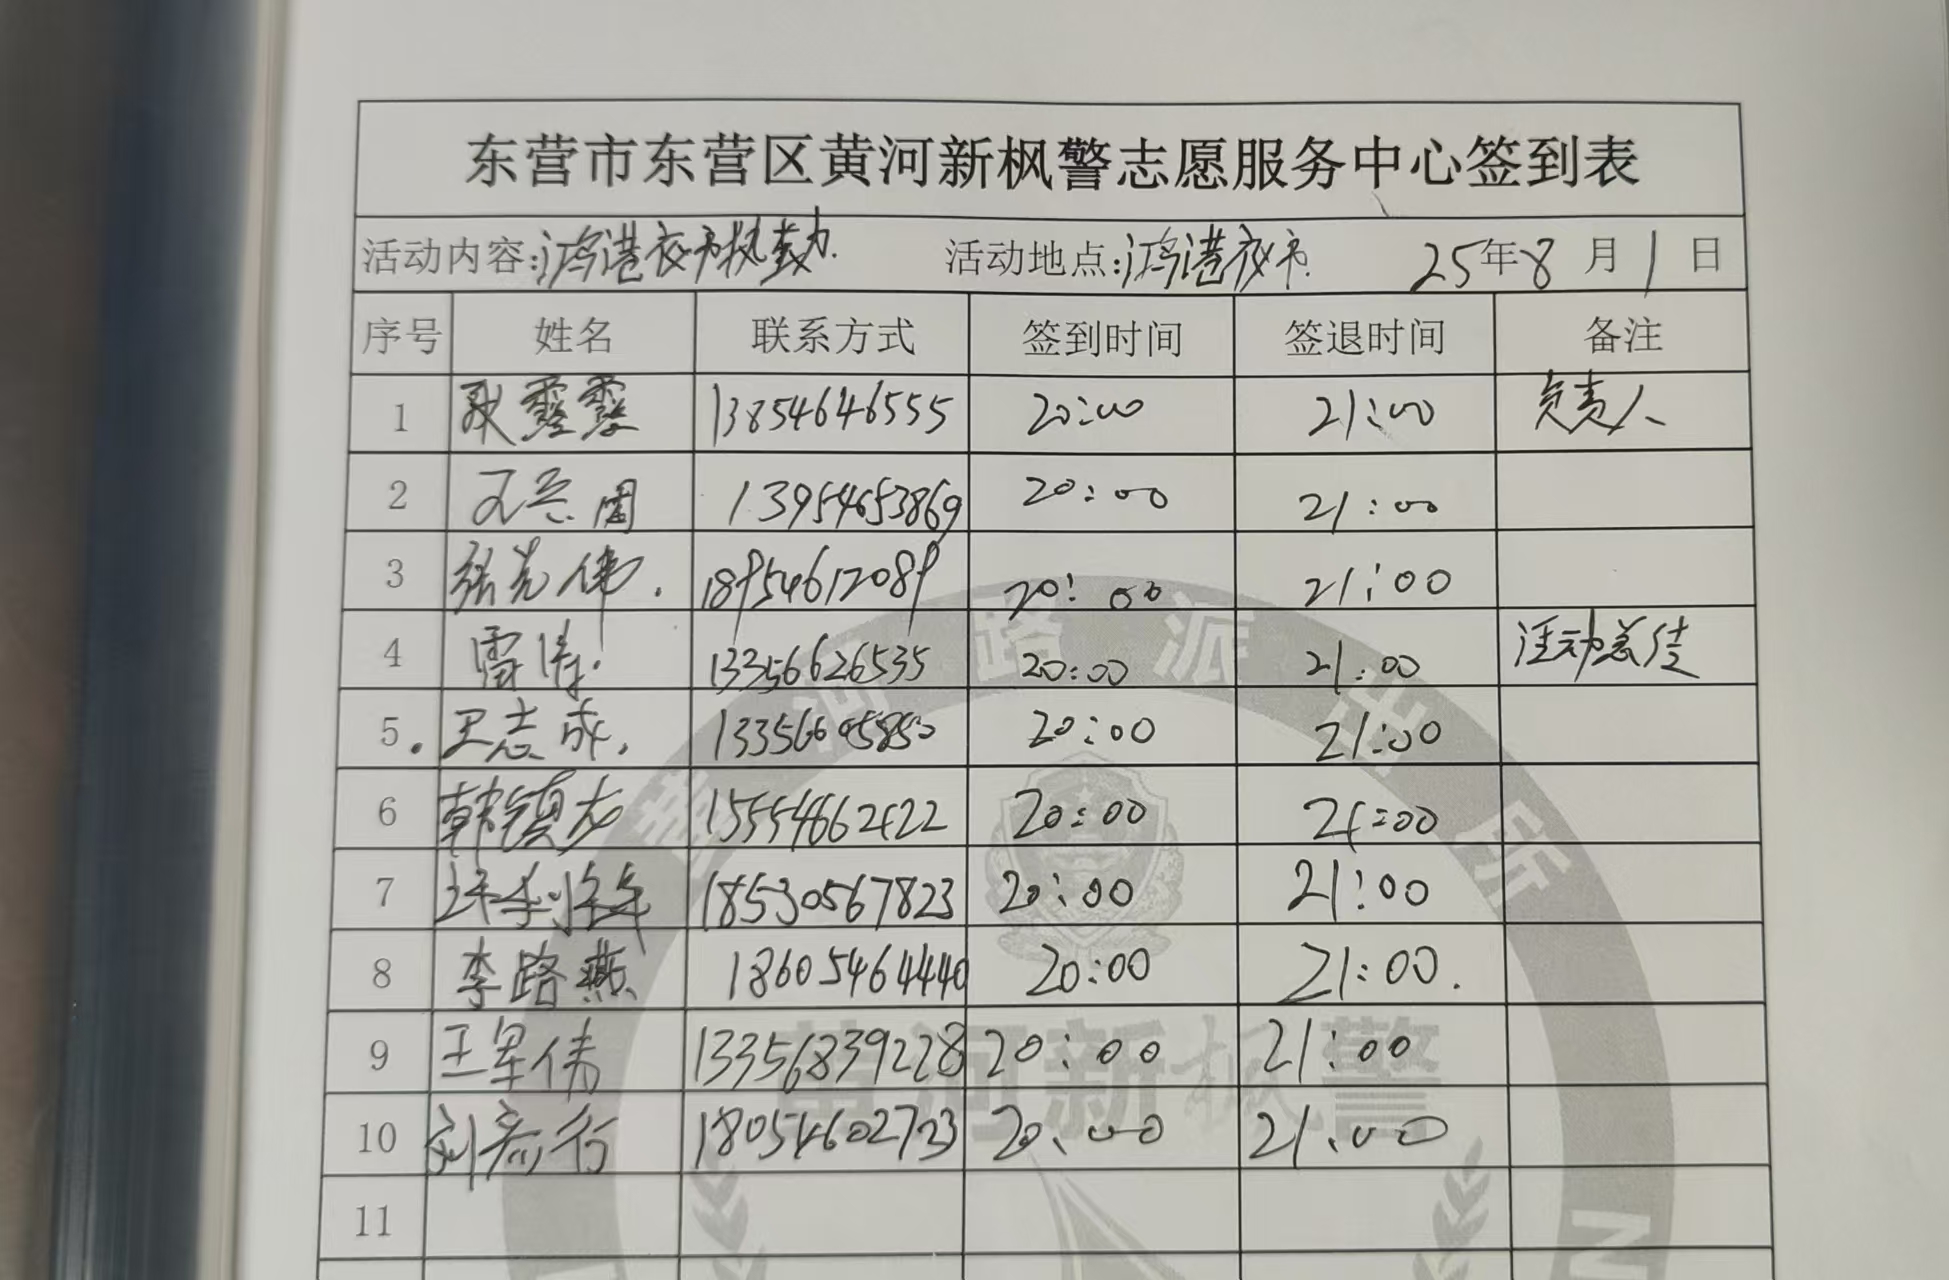 东营市东营区黄河新枫警志愿服务中心签到表
活动内容:鸿港夜市执勤. 活动地点:鸿港夜市. 25年8月1日
序号 姓名 联系方式 签到时间 签退时间 备注
1 耿露露 13854646555 20:00 21:00 负责人
2 13954653869 20:00 21:00
3 张光伟. 18954612089 20:00 21:00
4 雷涛. 13356626535 20:00 21:00 活动总结
5. 王志成. 13356605850 20:00 21:00
6 韩镇龙 15554662422 20:00 21:00
7 18530567823 20:00 21:00
8 李路燕 18605464440 20:00 21:00.
9 王军伟 13356839228 20:00 21:00
10 18054602723 20:00 21:00
11
黄河路派出所
黄河新枫警